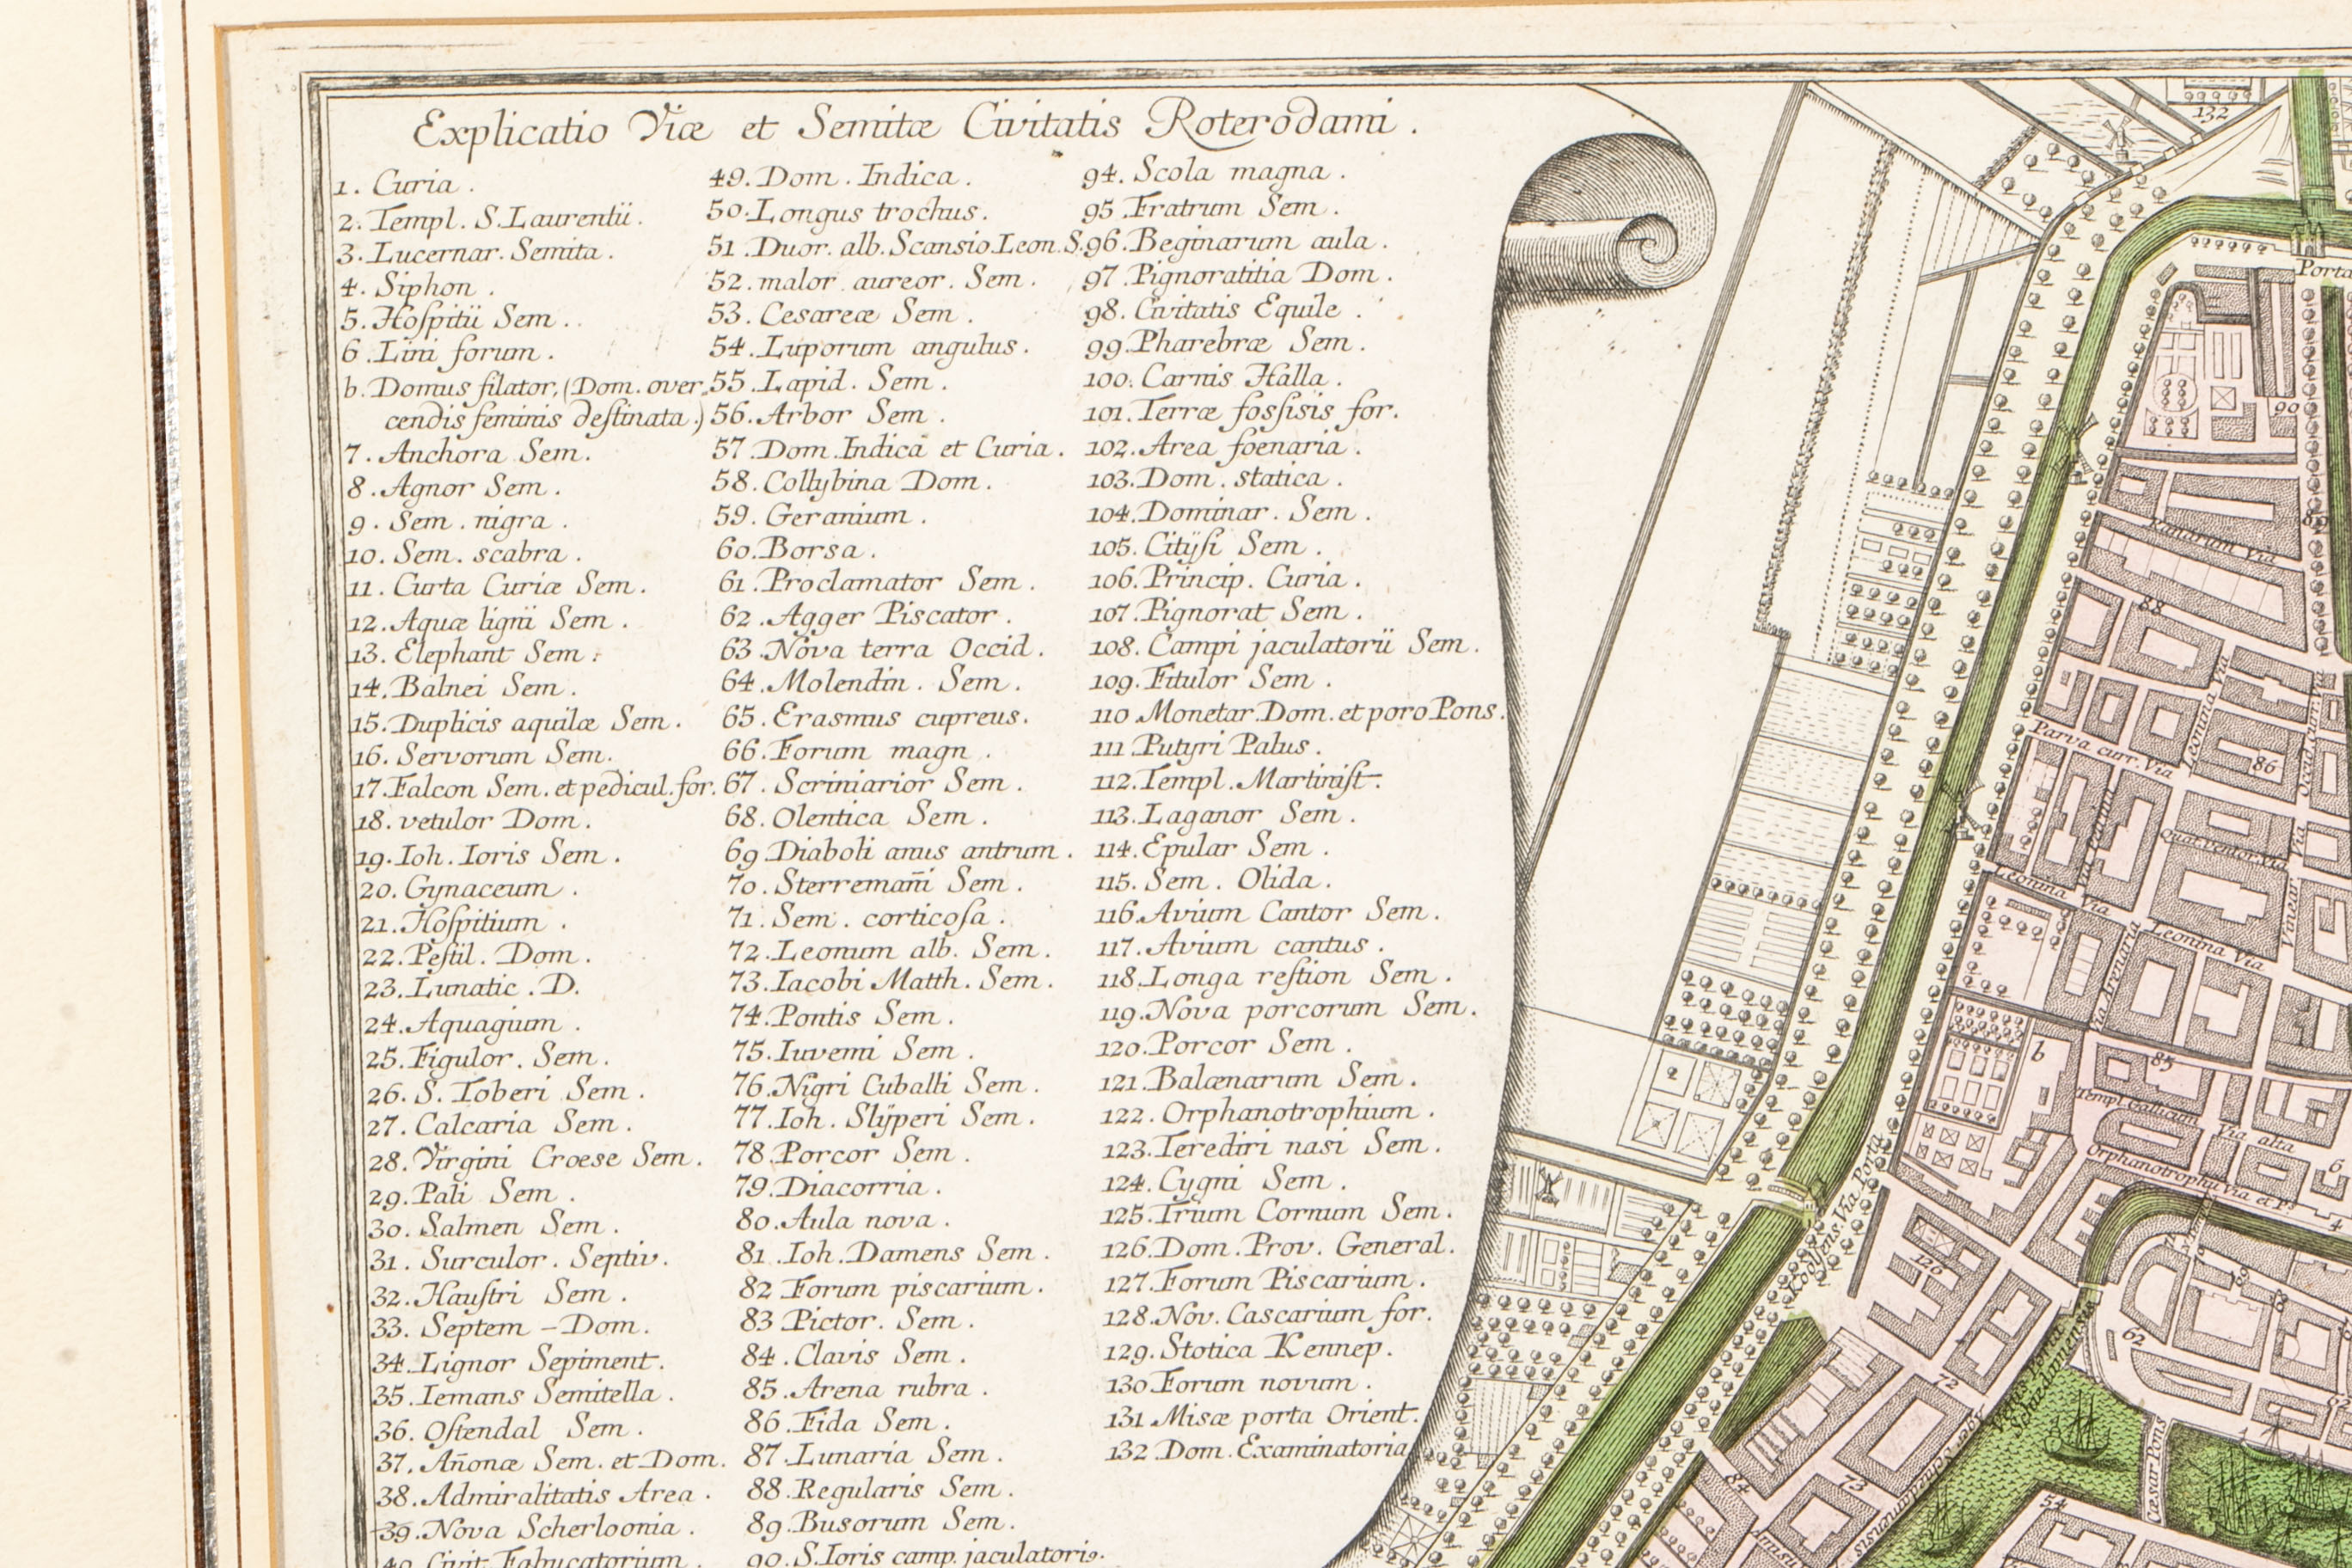 Explicatio Viæ et Semitæ Civitatis Roterodami.
1. Curia.
2. Templ. S. Laurentii.
3. Lucernar. Semita.
4. Siphon.
5. Hoſpitii Sem.
6. Lini forum.
b. Domus filator, (Dom. over
cendis feminis deſtinata.)
7. Anchora Sem.
8. Agnor Sem.
9. Sem. nigra.
10. Sem. scabra.
11. Curta Curiæ Sem.
12. Aquæ lignii Sem.
13. Elephant Sem.
14. Balnei Sem.
15. Duplicis aquilæ Sem.
16. Servorum Sem.
17. Falcon Sem. et pedicul. for.
18. vetulor Dom.
19. Ioh. Ioris Sem.
20. Gynaceum.
21. Hoſpitium.
22. Peſtil. Dom.
23. Lunatic. D.
24. Aquagium.
25. Figulor. Sem.
26. S. Ioberi Sem.
27. Calcaria Sem.
28. Virgini Croese Sem.
29. Pali Sem.
30. Salmen Sem.
31. Surculor. Septiv.
32. Hauſtri Sem.
33. Septem - Dom.
34. Lignor Sepiment.
35. Iemans Semitella.
36. Oſtendal Sem.
37. Añonæ Sem. et Dom.
38. Admiralitatis Area.
39. Nova Scherloonia.
40. Civit. Fabucatorium.
49. Dom. Indica.
50. Longus trochus.
51. Duor. alb. Scansio Leon. S.
52. malor aureor. Sem.
53. Cesareæ Sem.
54. Luporum angulus.
55. Lapid. Sem.
56. Arbor Sem.
57. Dom. Indica et Curia.
58. Collybina Dom.
59. Geranium.
60. Borsa.
61. Proclamator Sem.
62. Agger Piscator.
63. Nova terra Occid.
64. Molendin. Sem.
65. Erasmus cupreus.
66. Forum magn.
67. Scriniarior Sem.
68. Olentica Sem.
69. Diaboli anus antrum.
70. Sterremañi Sem.
71. Sem. corticoſa.
72. Leonum alb. Sem.
73. Iacobi Matth. Sem.
74. Pontis Sem.
75. Iuvemi Sem.
76. Nigri Cuballi Sem.
77. Ioh. Slÿperi Sem.
78. Porcor Sem.
79. Diacorria.
80. Aula nova.
81. Ioh. Damens Sem.
82 Forum piscarium.
83 Pictor. Sem.
84. Clavis Sem.
85. Arena rubra.
86. Fida Sem.
87. Lunaria Sem.
88. Regularis Sem.
89. Busorum Sem.
90. S. Ioris camp. jaculatorio.
94. Scola magna.
95. Fratrum Sem.
96. Beginarum aula.
97. Pignoratitia Dom.
98. Civitatis Equile.
99. Pharebræ Sem.
100. Carnis Halla.
101. Terræ foſsisis for.
102. Area foenaria.
103. Dom. statica.
104. Dominar. Sem.
105. Citÿſi Sem.
106. Princip. Curia.
107. Pignorat Sem.
108. Campi jaculatorii Sem.
109. Fitulor Sem.
110 Monetar. Dom. et poro Pons.
111 Putyri Palus.
112. Templ. Martiniſt.
113. Laganor Sem.
114. Epular Sem.
115. Sem. Olida.
116. Avium Cantor Sem.
117. Avium cantus.
118. Longa reſtion Sem.
119. Nova porcorum Sem.
120. Porcor Sem.
121. Balænarum Sem.
122. Orphanotrophium.
123. Terediri nasi Sem.
124. Cygni Sem.
125. Trium Cornum Sem.
126. Dom. Prov. General.
127. Forum Piscarium.
128. Nov. Cascarium for.
129. Stotica Kennep.
130 Forum novum.
131 Misæ porta Orient.
132 Dom. Examinatoria
132
Porta
90
Via
88
Leonina Via
Parva curr. Via
86
Occid. curr. Via
Quat. ventor. Via
Leonina Via
Leonina Via
Via Arenaria
b
85
Templ. Gallicum
Via alta
6
Orphanotrophii Via et P.
4
Via Porta
126
62
72
73
84
54
Cæsar Pons